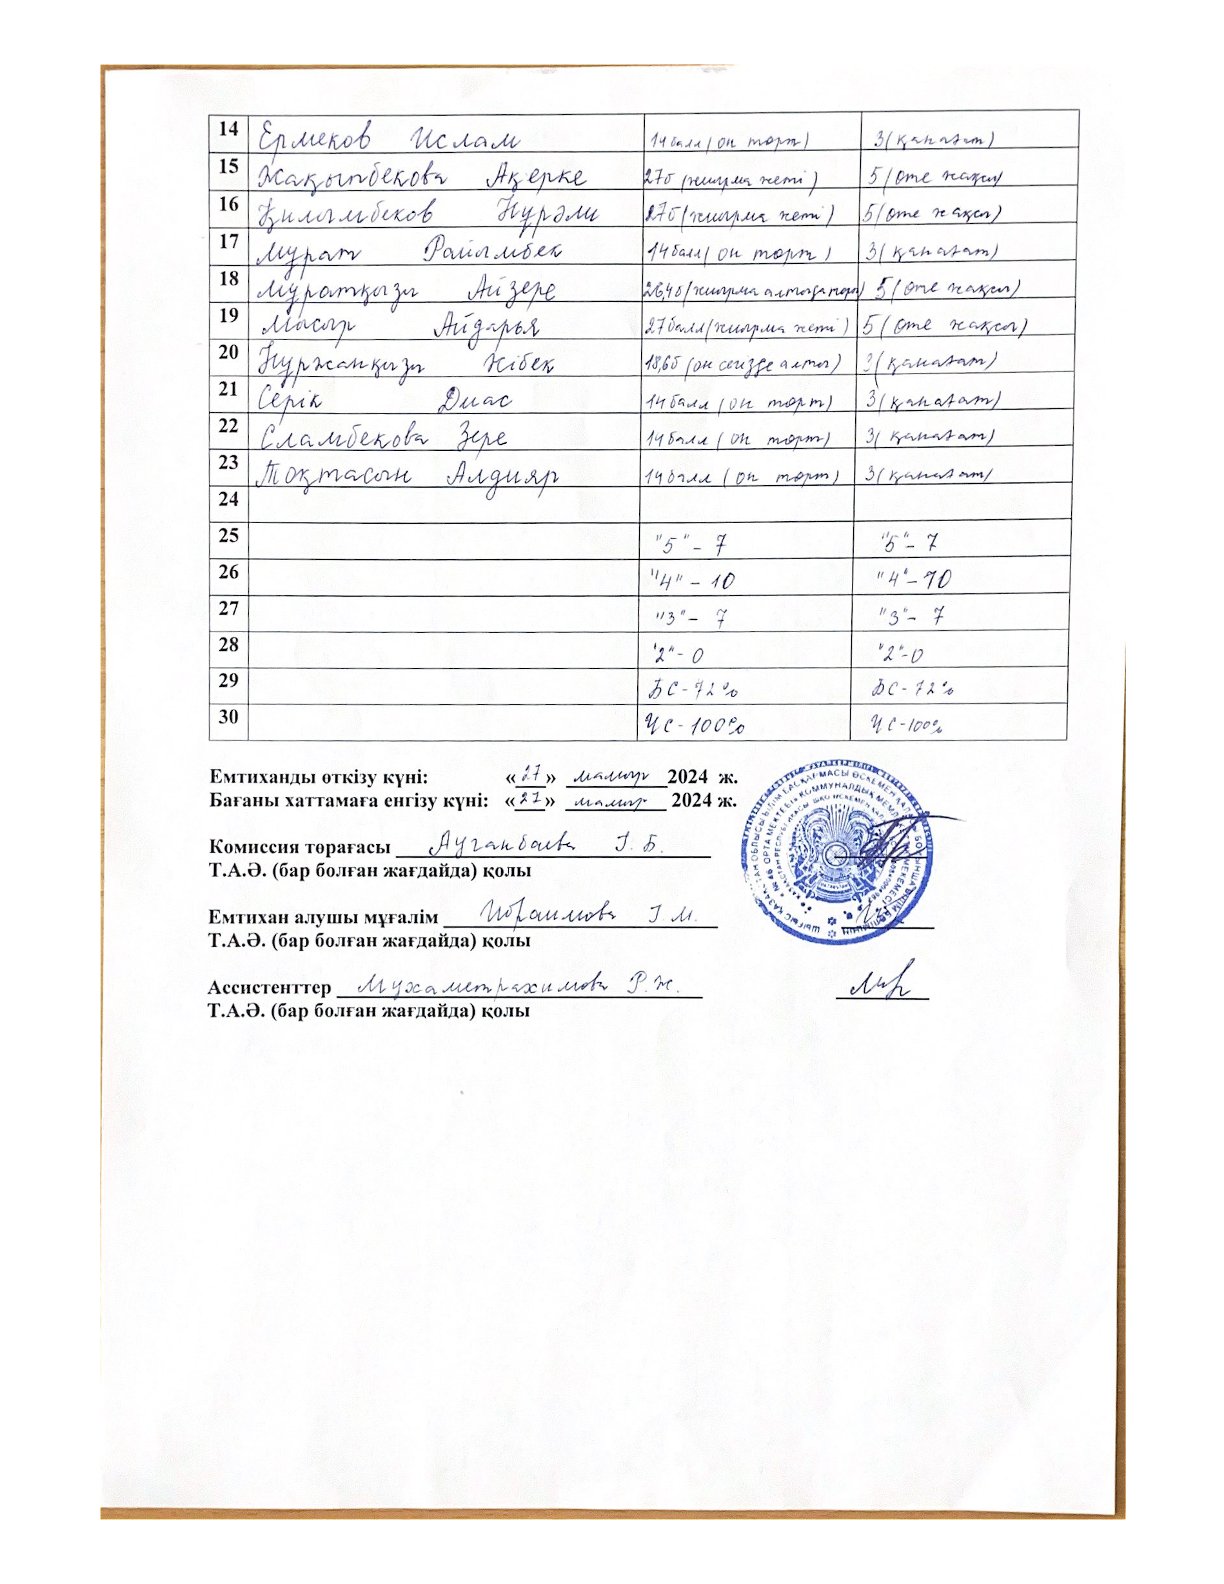 14 Ермеков Ислам 14 балл (он төрт) 3 (қанағат)
15 Жақыпбекова Ақерке 27б (жиырма жеті) 5 (өте жақсы)
16 Қилымбеков Нұрәли 27б (жиырма жеті) 5 (өте жақсы)
17 Мұрат Райымбек 14 балл (он төрт) 3 (қанағат)
18 Мұратқызы Айзере 26,4б (жиырма алтыда төрт) 5 (өте жақсы)
19 Айдарья 27 балл (жиырма жеті) 5 (өте жақсы)
20 Нұржанқызы Жібек 18,6б (он сегізде алты) 3 (қанағат)
21 Серік Диас 14 балл (он төрт) 3 (қанағат)
22 Сламбекова Зере 14 балл (он төрт) 3 (қанағат)
23 Тоқтасын Алдияр 14 балл (он төрт) 3 (қанағат)
24
25 "5" - 7 "5" - 7
26 "4" - 10 "4" - 10
27 "3" - 7 "3" - 7
28 "2" - 0 "2" - 0
29 БС - 72% БС - 72%
30 ҮС - 100% ҮС - 100%
Емтиханды өткізу күні: «27» мамыр 2024 ж.
Бағаны хаттамаға енгізу күні: «27» мамыр 2024 ж.
Комиссия төрағасы Ауганбаева Г. Б.
Т.А.Ә. (бар болған жағдайда) қолы
Емтихан алушы мұғалім Ибраимова Г. М.
Т.А.Ә. (бар болған жағдайда) қолы
Ассистенттер Мухаметрахимова Р. Ж.
Т.А.Ә. (бар болған жағдайда) қолы